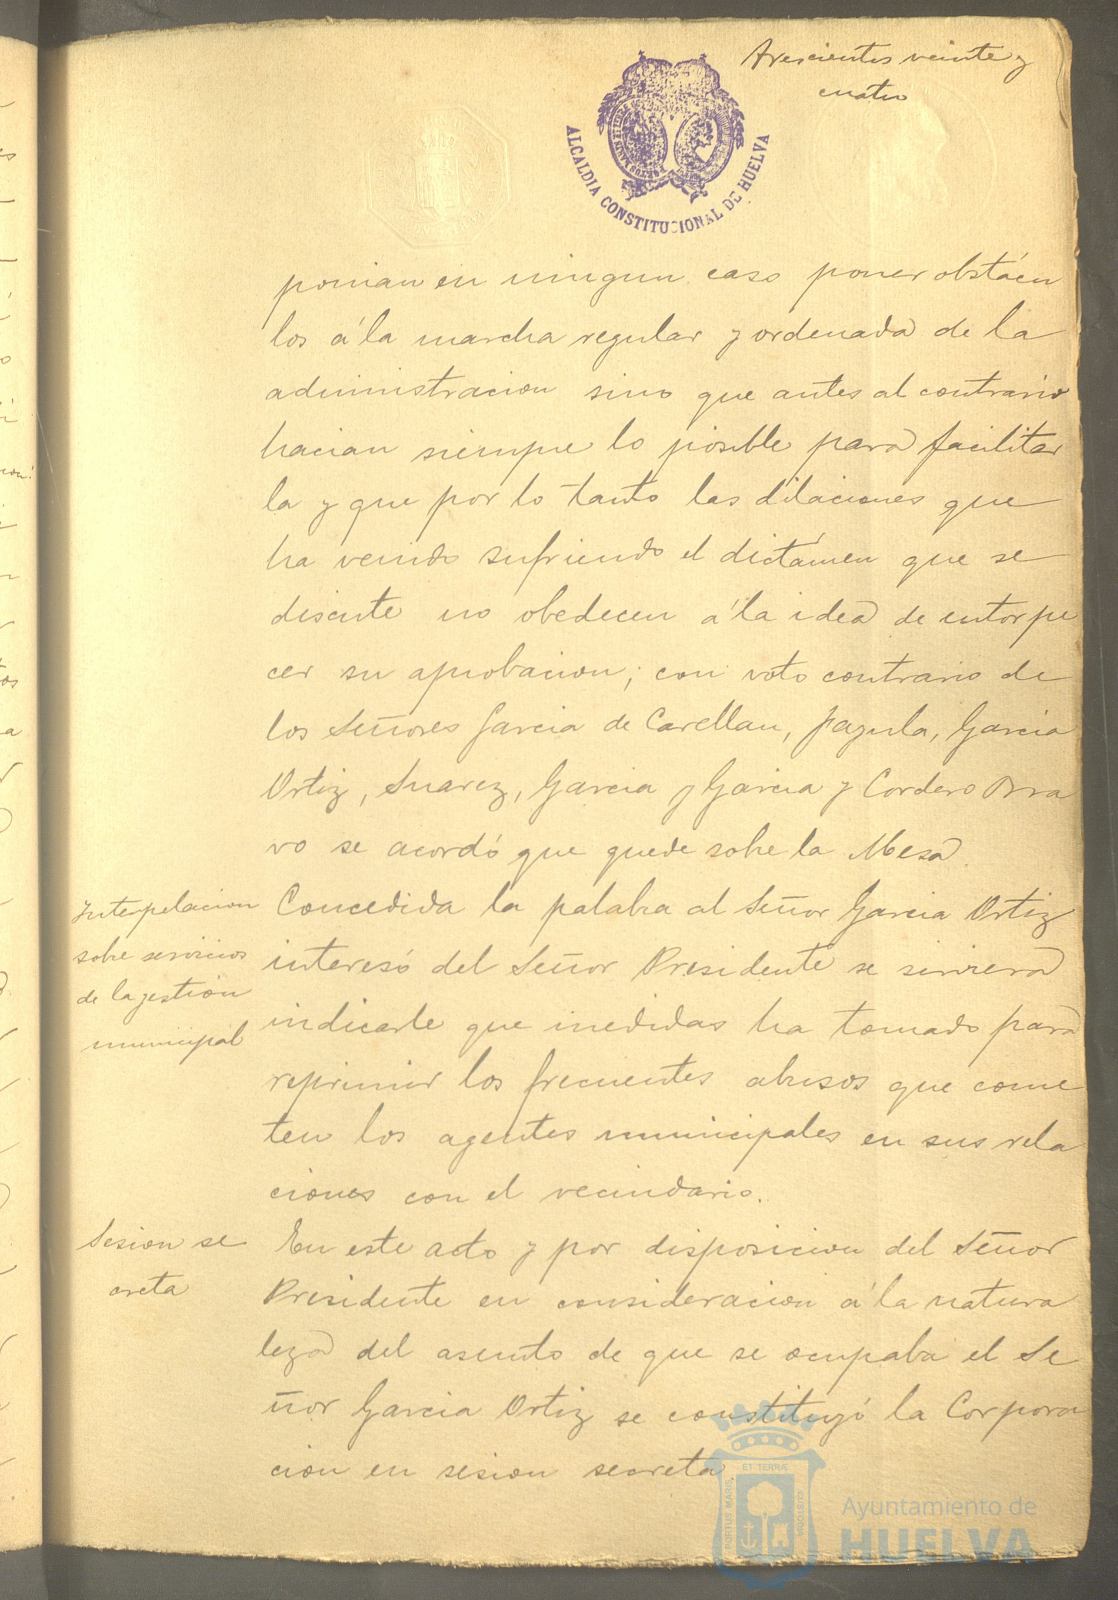 trescientos veinte y
cuatro
ALCALDIA CONSTITUCIONAL DE HUELVA
ponian en ningun caso poner obstácu
los á la marcha regular y ordenada de la
administracion sino que antes al contrario
hacian siempre lo posible para facilitar
la y que por lo tanto las dilaciones que
ha venido sufriendo el dictámen que se
discute no obedecen á la idea de entorpe
cer su aprobacion; con voto contrario de
los Señores Garcia de Carellan, Jazula, Garcia
Ortiz, Suarez, Garcia y Garcia y Cordero Bra
vo se acordó que quede sobre la Mesa.
Interpelacion
sobre servicios
de la gestion
municipal
Concedida la palabra al Señor Garcia Ortiz
interesó del Señor Presidente se sirviera
indicarle que medidas ha tomado para
reprimir los frecuentes abusos que come
ten los agentes municipales en sus rela
ciones con el vecindario.
Sesion se
creta
En este acto y por disposicion del Señor
Presidente en consideracion á la natura
leza del asunto de que se ocupaba el Se
ñor Garcia Ortiz se constituyó la Corpora
cion en sesion secreta
PORTUS MARIS ET TERRÆ CUSTODIA
Ayuntamiento de
HUELVA